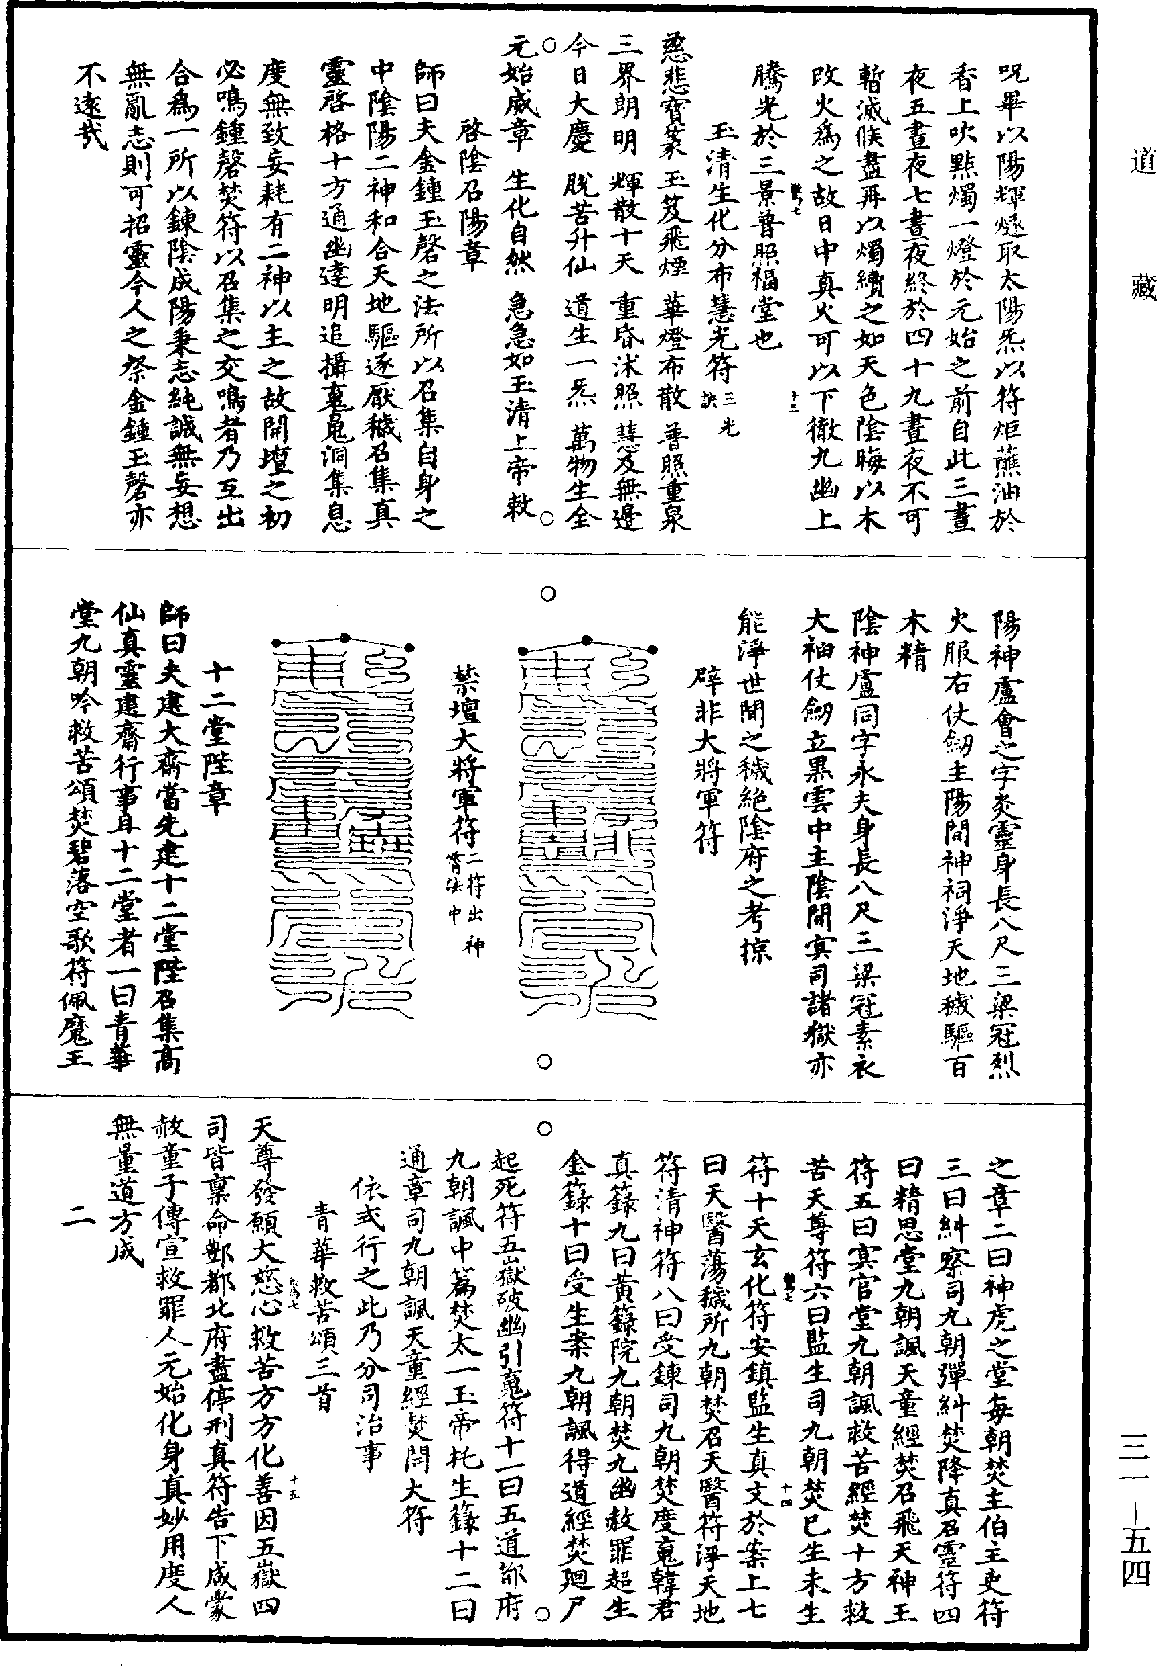 道藏
呪畢以陽輝燧取太陽炁以符炬蘸油於
香上吹點燭一燈於元始之前自此三晝
夜五晝夜七晝夜終於四十九晝夜不可
暫滅膜盡再以燭續之如天色陰晦以木
改火為之故日中真火可以下徹九幽上
騰光於三景普照福堂也
十三
玉清生化分布慧光符三光訣
慈悲寶篆 玉笈飛煙 華燈布散 普照重泉
三界朗明 輝散十天 重昏沐照 慧及無邊
今日大慶 脫苦升仙 道生一炁 萬物生全
元始威章 生化自然 急急如玉清上帝敕
啓陰召陽章
師曰夫金鍾玉磬之法所以召集自身之
中陰陽二神和合天地驅逐厭穢召集真
靈啓格十方通幽達明追攝䰟鬼洞集息
度無致妄耗有二神以主之故開壇之初
必鳴鍾磬焚符以召集之交鳴者乃互出
合為一所以鍊陰成陽秉志純誠無妄想
無亂志則可招靈今人之祭金鍾玉磬亦
不遠哉
陽神盧會之字炎靈身長八尺三梁冠烈
火服右仗劒主陽間神祠淨天地穢驅百
木精
陰神盧同字永夫身長八尺三梁冠素衣
大袖仗劒立黑雲中主陰間冥司諸獄亦
能淨世間之穢絶陰府之考掠
辟非大將軍符
禁壇大將軍符二符出神霄法中
十二堂陛章
師曰夫建大齋當先建十二堂陛召集高
仙真靈建齋行事耳十二堂者一曰青華
堂九朝吟救苦頌焚碧落空歌符佩魔王
之章二曰神虎之堂每朝焚主伯主吏符
三曰糾察司九朝彈糾焚降真召靈符四
曰精思堂九朝諷天童經焚召飛天神王
符五曰冥官堂九朝諷救苦經焚十方救
苦天尊符六曰監生司九朝焚已生未生
十四
符十天玄化符安鎮監生真文於案上七
曰天醫蕩穢所九朝焚召天醫符淨天地
符清神符八曰受鍊司九朝焚度䰟韓君
真籙九曰黃籙院九朝焚九幽赦罪超生
金籙十曰受生案九朝諷得道經焚廻尸
起死符五嶽破幽引䰟符十一曰五道部府
九朝諷中篇焚太一玉帝托生籙十二曰
通章司九朝諷天童經焚開大符
依式行之此乃分司治事
青華救苦頌三首
十五
天尊發願大慈心救苦方方化善因五嶽四
司皆稟命酆都北府盡停刑真符告下咸蒙
赦童子傳宣救罪人元始化身真妙用度人
無量道方成
二
三一-五四